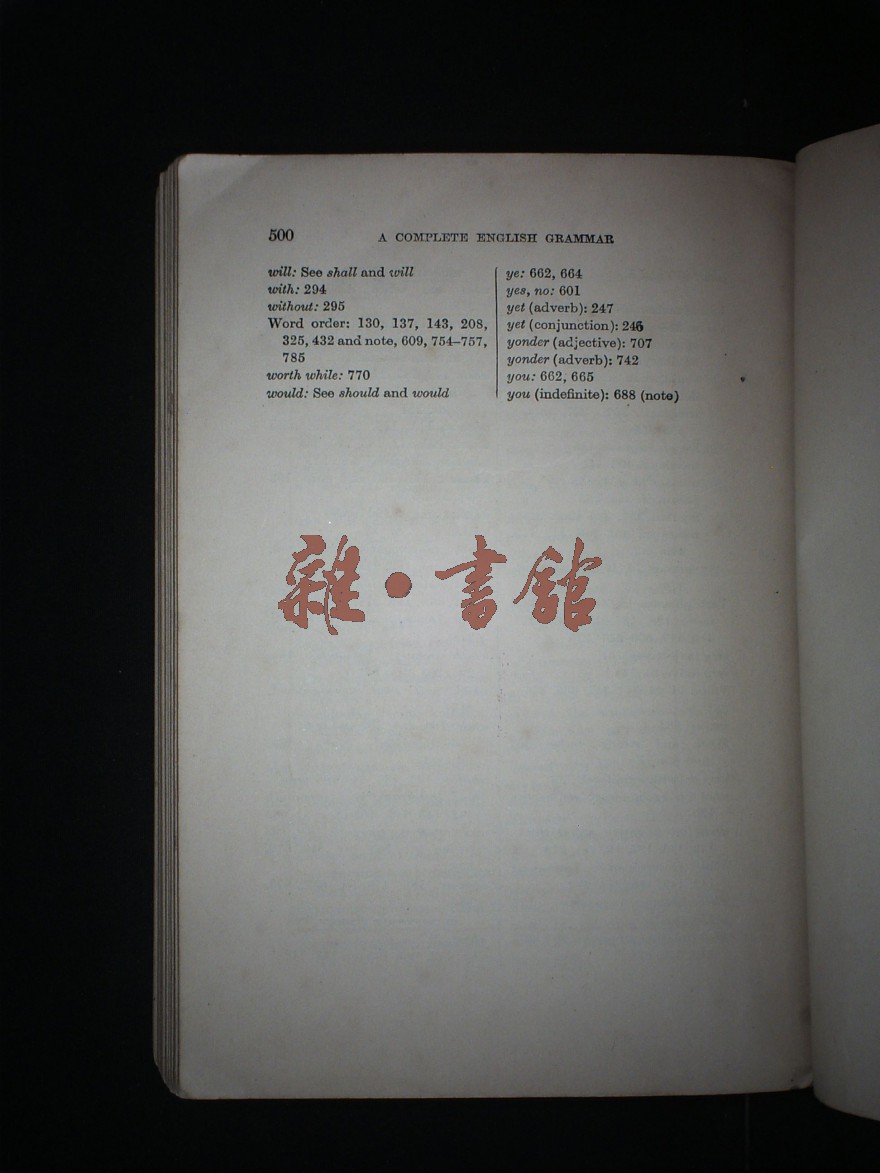 500 A COMPLETE ENGLISH GRAMMAR
will: See shall and will
with: 294
without: 295
Word order: 130, 137, 143, 208,
325, 432 and note, 609, 754–757,
785
worth while: 770
would: See should and would
ye: 662, 664
yes, no: 601
yet (adverb): 247
yet (conjunction): 246
yonder (adjective): 707
yonder (adverb): 742
you: 662, 665
you (indefinite): 688 (note)
雜·書館